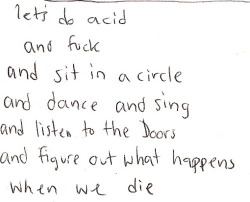 let's do acid
and fuck
and sit in a circle
and dance and sing
and listen to the Doors
and figure out what happens
when we die